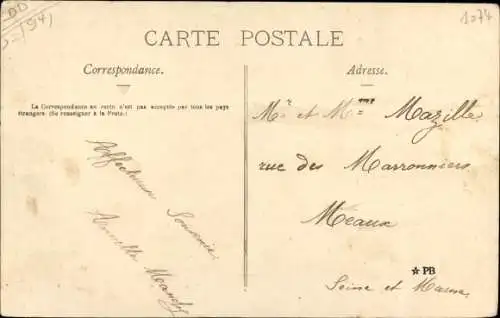 1074
CARTE POSTALE
Correspondance.
La Correspondance au recto n'est pas acceptée par tous les pays
étrangers. (Se renseigner à la Poste.)
Affectueux Souvenir
Mandy
Adresse.
Mr et Mme Mazille
rue des Marronniers
Meaux
☆PB
Seine et Marne